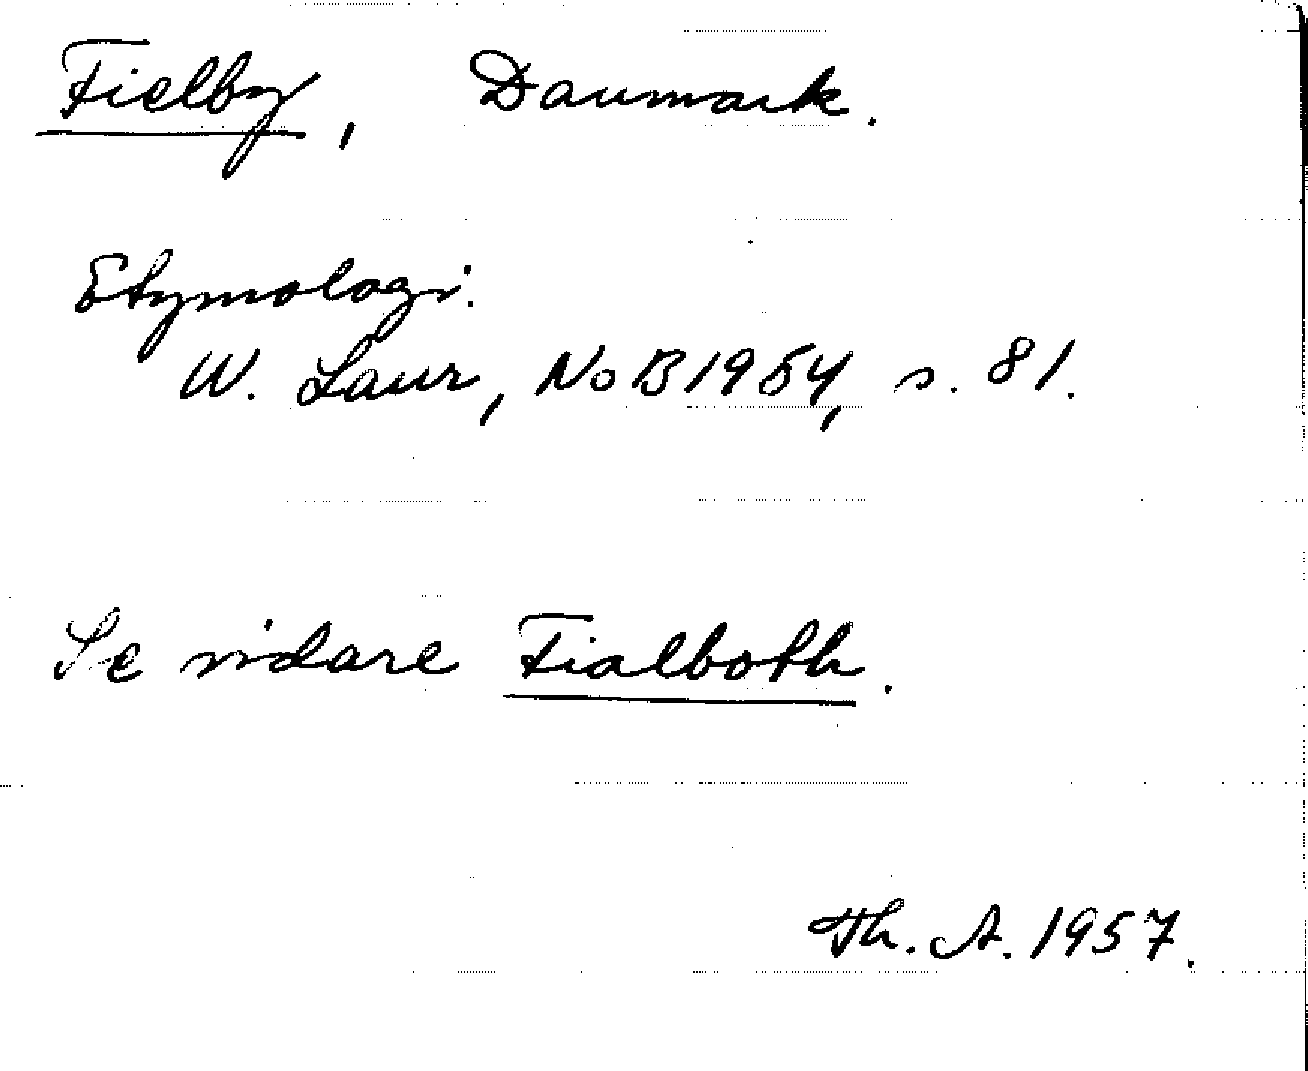 Fielby, Danmark.
Etymologi.
W. Laur, NoB 1954, s. 81.
Se vidare Fialboth.
Th. A. 1957.